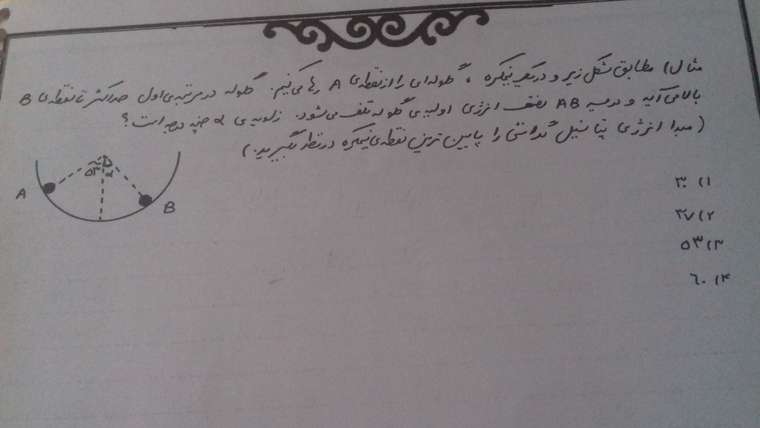 مثال) مطابق شکل زیر و در یک نیمکره، گلوله‌ای را از نقطه‌ی A رها می‌کنیم. گلوله در مرتبه‌ی اول حداکثر تا نقطه‌ی B
بالا می‌آید و در مسیر AB نصف انرژی اولیه‌ی گلوله تلف می‌شود. زاویه‌ی α چند درجه است؟
(مبدا انرژی پتانسیل گرانشی را پایین ترین نقطه‌ی نیمکره در نظر بگیرید.)
۱) ۳۰
۲) ۳۷
۳) ۵۳
۴) ۶۰
۵۳ α
A
B